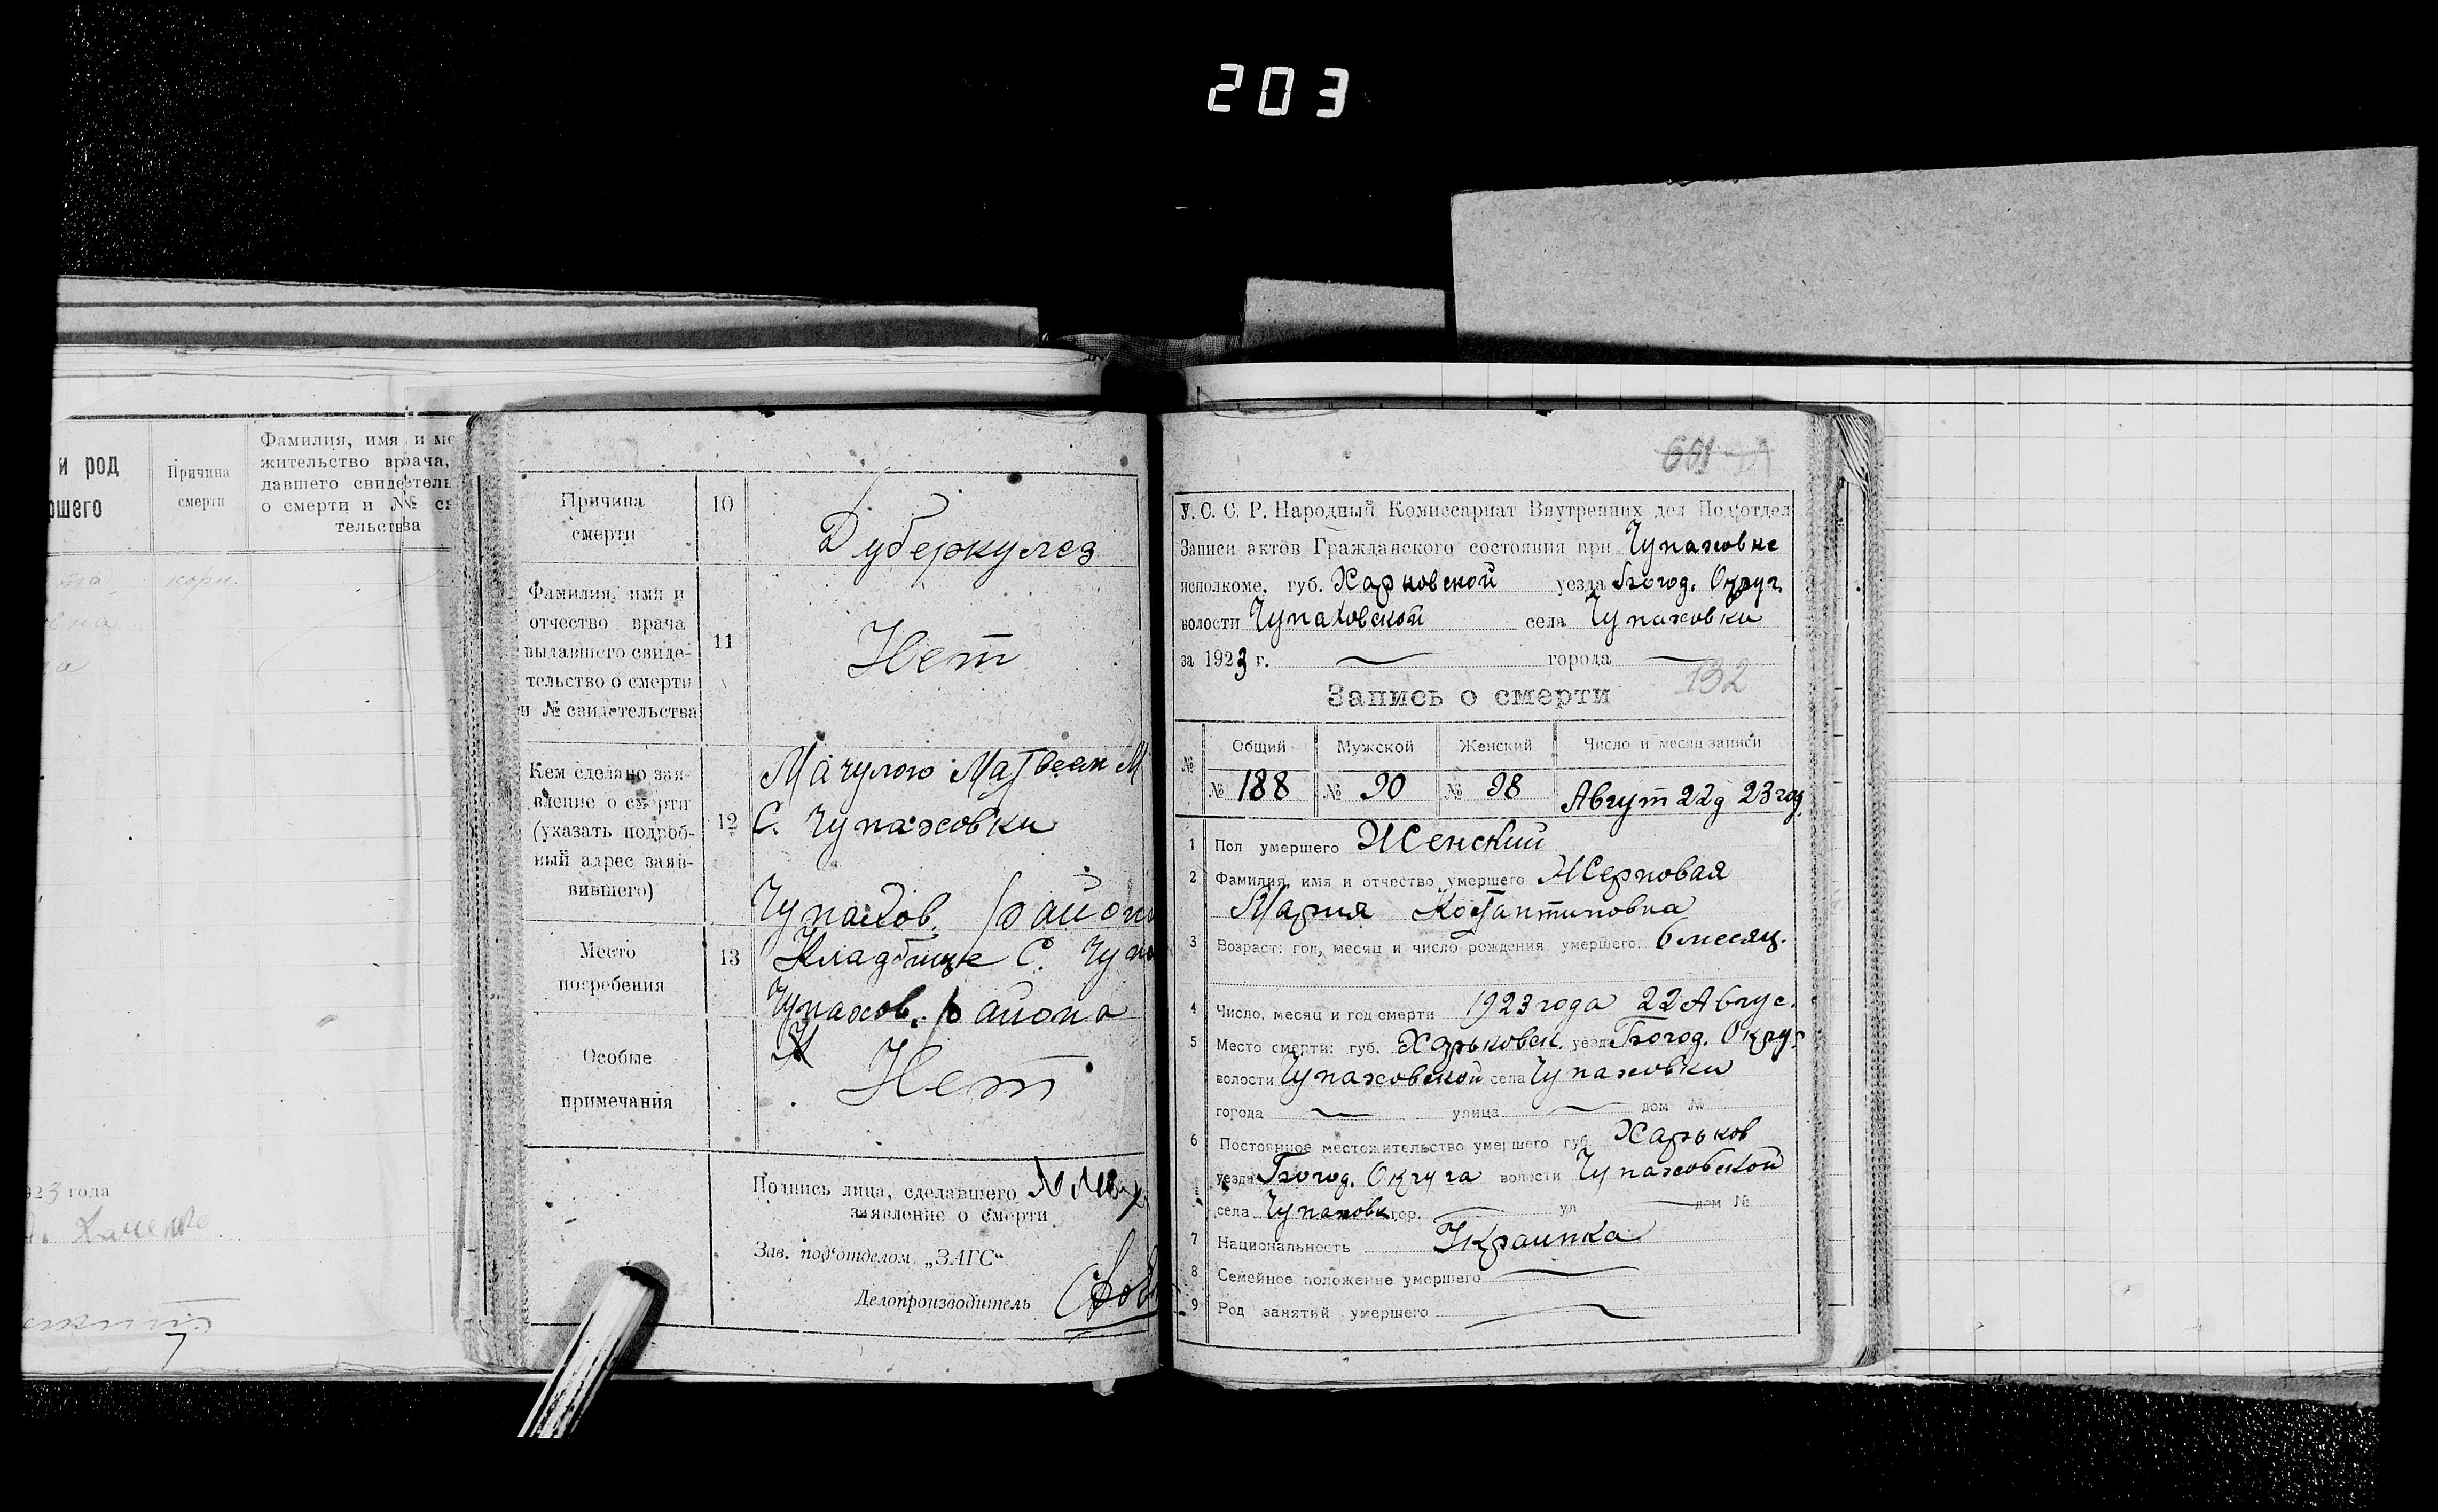 203
и род
ршего
Причина
смерти
Фамилия, имя и ме
жительство врача,
давшего свидетель
о смерти и № св
тельства
923 года
7
Причина
смерти
10
Дуберкулез
Фамилия, имя и
отчество врача
выдавшего свиде-
тельство о смерти
и № свидетельства
11
Нет
Кем сделано зая-
вление о смерти
(указать подроб-
ный адрес заяв-
вившего)
12
Мачулою Матвеем М
С. Чупаховки
Чупахов. район
Место
погребения
13
Кладбище С. Чупа
Чупахов. района
Особые
примечания
Нет
Подпись лица, сделавшего
заявление о смерти
Зав. подотделом „ЗАГС“
Делопроизводитель
601
У. С. С. Р. Народный Комиссариат Внутренних дел Подотдел
Записи актов Гражданского состояния при Чупаховке
исполкоме, губ. Харковской уезда Богод. Округ.
волости Чупаховской села Чупаховки
за 1923 г. города
132
Запись о смерти
№ Общий Мужской Женский Число и месяц записи
№ 188 № 90 № 98 Август 22д 23 год.
1 Пол умершего Женский
2 Фамилия, имя и отчество умершего Жерновая
Мария Костантиновна
3 Возраст: год, месяц и число рождения умершего: 6 месяц.
4 Число, месяц и год смерти 1923 года 22 Авгус.
5 Место смерти: губ. Харьковск. уезда Богод. Окру.
волости Чупаховской села Чупаховки
города улица дом №
6 Постоянное местожительство умершего губ. Харьков
уезда Богод. Округа волости Чупаховской
села Чупаховк. гор. ул дом №
7 Национальность Украинка
8 Семейное положение умершего
9 Род занятий умершего